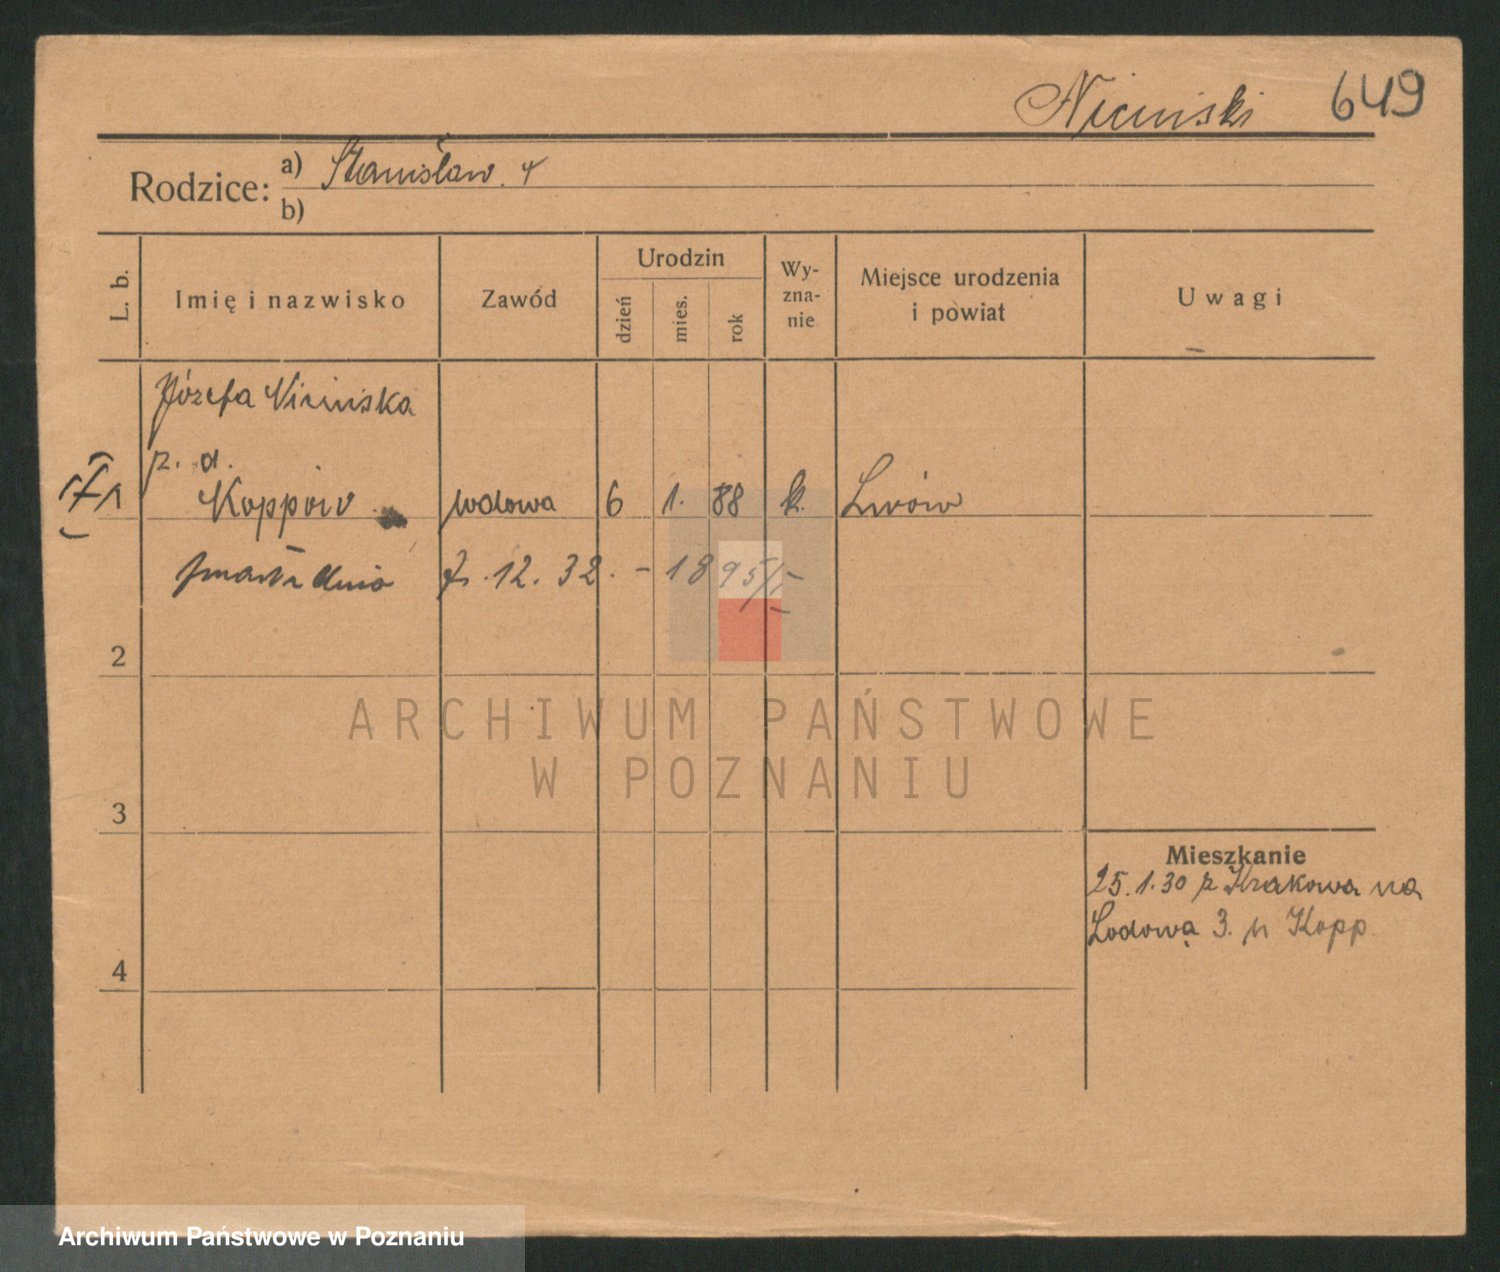 Niciński 649
Rodzice: a) Stanisław. +
b)
L. b. Imię i nazwisko Zawód Urodzin dzień mies. rok Wy-zna-nie Miejsce urodzenia i powiat Uwagi
Józefa Nicińska
z. d.
1 Koppów wdowa 6 1. 88 k. Lwów
zmarła dnia 7. 12. 32. - 1895/I
2
3
Mieszkanie
25.1.30 z Krakowa na
Lodową 3. u Kopp
4
ARCHIWUM PAŃSTWOWE
W POZNANIU
Archiwum Państwowe w Poznaniu